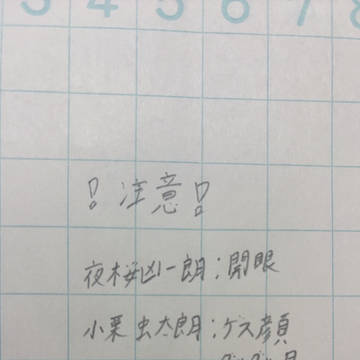 3 4 5 6 7 8
！注意！
夜桜凶一朗：開眼
小栗虫太朗：ゲス顔